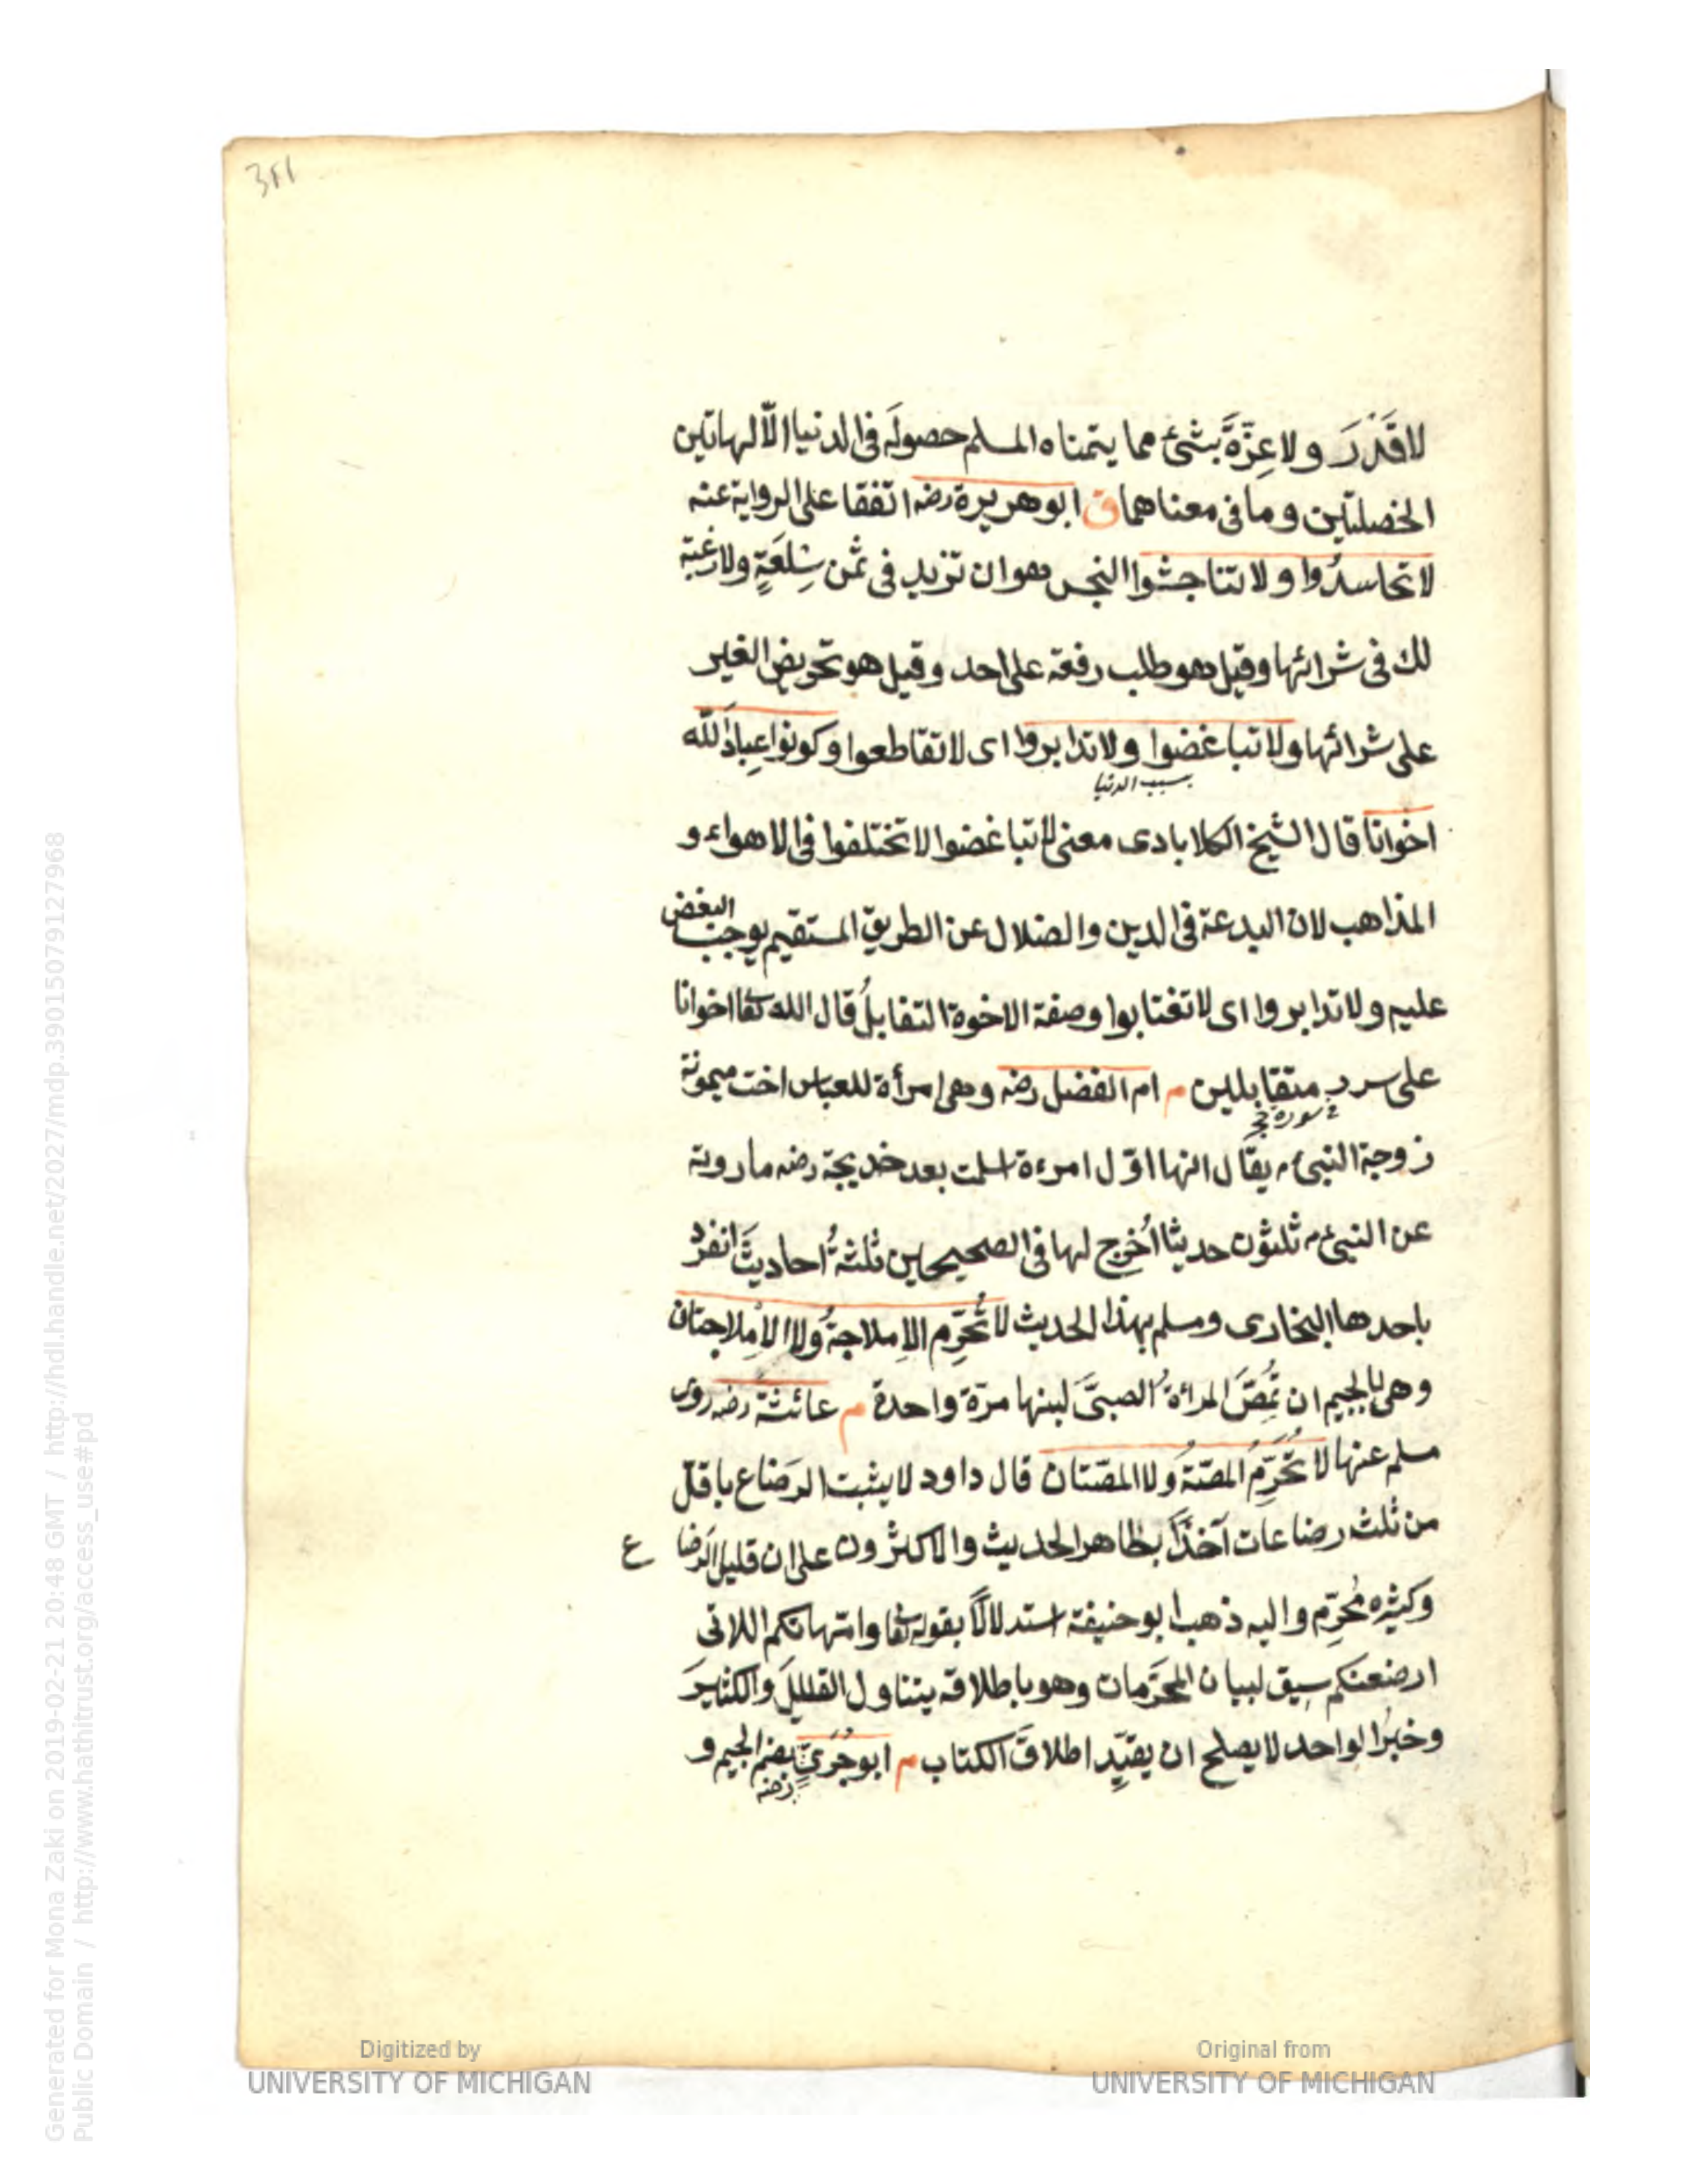 311
لا قَدْرَ ولا عِزّةَ بشئ مما يتمناه المسلم حصولَه فى الدنيا الّا لهاتين
الخصلتين وما فى معناهما ق ابو هريرة رضه اتفقا على الرواية عنه
لا تحاسدُوا ولا تناجشوا النجس وهو ان تزيد فى ثمن سِلعَةٍ ولا رغبة
لك فى شرائها وقيل هو طلب رفعة على احد وقيل هو تحريض الغير
على شرائها ولا تباغضوا ولا تدابروا اى لا تقاطعوا وكونوا عِبادَ الله
بسبب الدنيا
اخوانًا قال الشيخ الكلابادى معنى لا تباغضوا لا تختلفوا فى الاهواء و
المذاهب لان البدعة فى الدين والضلال عن الطريق المستقيم يوجب البغض
عليه ولا تدابروا اى لا تغتابوا وصفة الاخوة التقابلُ قال الله تعا اخوانا
على سرر متقابلين م ام الفضل رضه وهى امرأة للعباس اخت ميمونة
سورة حج
زوجة النبى م يقال انها اوّل امرءة اسلمت بعد خديجة رضه ما روته
عن النبى م ثلثون حديثا اُخرِج لها فى الصحيحين ثلثةُ احاديثَ انفرد
باحدها البخارى ومسلم بهذا الحديث لا تُحَرِّم الاِملاجةُ ولا الاِملاجتان
وهى بالجيم ان تُمِصَّ المرأةُ الصبىَّ لبنها مرّة واحدة م عائشة رضه روى
مسلم عنها لا تُحَرِّمُ المصّةُ ولا المصّتان قال داود لا يثبت الرّضاع باقلّ
من ثلث رضاعات آخذًا بظاهر الحديث والاكثرون على ان قليل الرّضا ع
وكثيره مُحَرِّم واليه ذهب ابو حنيفة استدلالًا بقوله تعا وامّهاتكم اللاتى
ارضعنكم سيق لبيان المحرّمات وهو باطلاقه يتناول القليلَ والكثيرَ
وخبرُ الواحد لا يصلح ان يقيّد اطلاقَ الكتاب م ابو جُرَىٍّ بضم الجيم و
رضه
Digitized by
UNIVERSITY OF MICHIGAN
Original from
UNIVERSITY OF MICHIGAN
Generated for Mona Zaki on 2019-02-21 20:48 GMT / http://hdl.handle.net/2027/mdp.39015079127968
Public Domain / http://www.hathitrust.org/access_use#pd